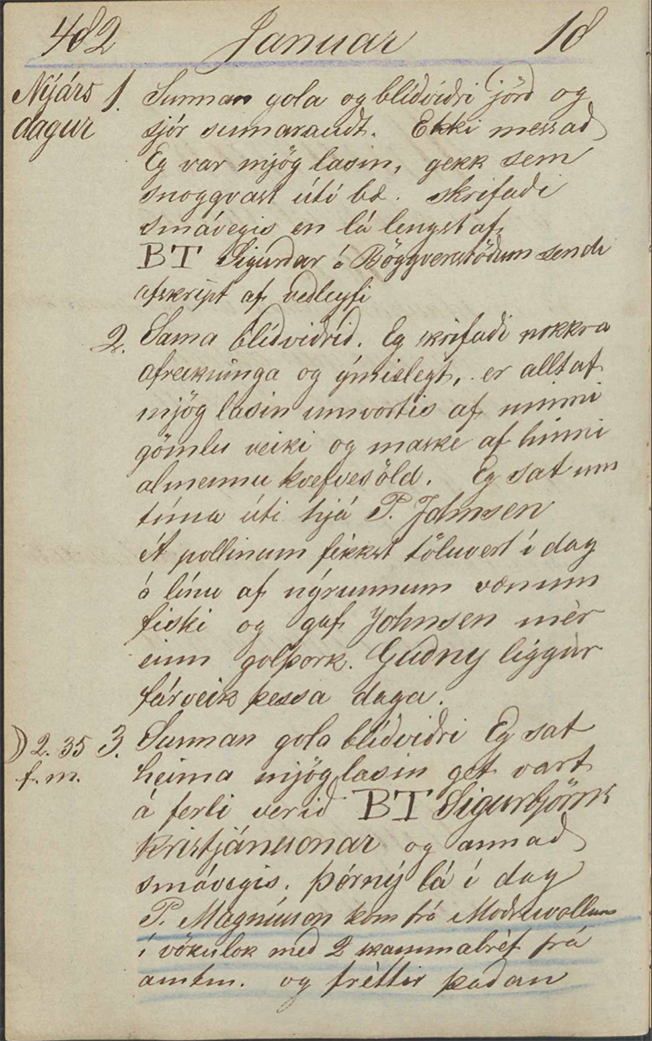 482 Januar 18
Nýárs dagur 1. Sunnan gola og blídvidri jörd og
sjór sumaraudt. Ekki messad
Eg var mjög lasin, gekk sem
snoggvast úti bæ. skrifadi
smávegis en lá lengst af
BT Sigurdar á Böggverstödum sendi
afskript af vedleyfi
2. Sama blídvidrid. Eg skrifadi nokkra
afreiknínga og ýmislegt, er allt af
mjög lasin innvortis af minni
gömlu veiki og maske af hinni
almennu kvefvesöld. Eg sat um
tíma úti hjá P. Johnsen
Á pollinum fékkst töluvert í dag
á línu af nýrunnum vænum
fiski og gaf Johnsen mér
einn golþork. Gudny liggur
fárveik þessa daga.
) 2. 35 f. m. 3. Sunnan gola blídvidri Eg sat
heima mjög lasin get vart
á ferli verid BT Sigurbjörns
Kristjánssonar og annad
smávegis. Þórný lá í dag
P. Magnússon kom frá Modruvollum
í vökulok med 2 kammabréf frá
amtm. og fréttir þadan